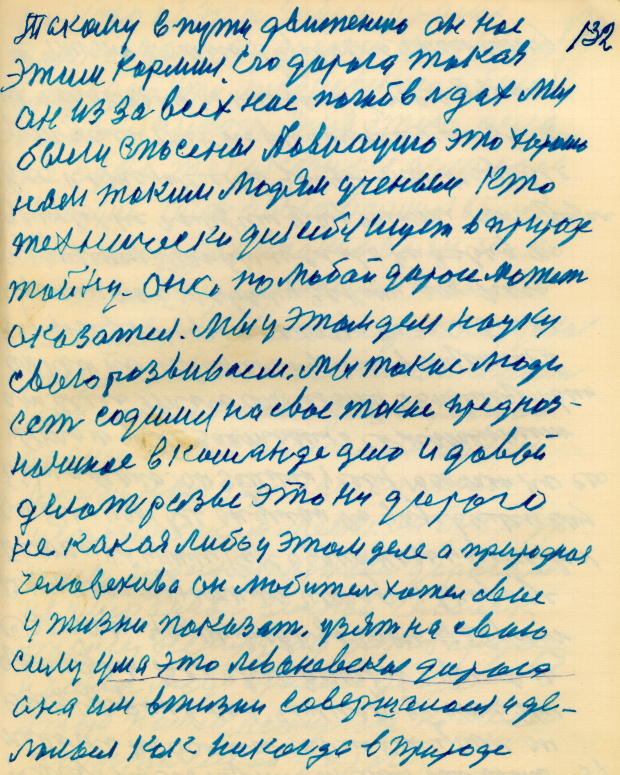 132
Такому в пути движению он нас
этим кормил. Его дорога такая
он из за всех нас погиб в льдах мы
были спасены Повидишо это хорошо
нам таким людям ученым Кто
технически для себя ищет в природе
тайну. она по любой дороге может
оказатся. Мы у этом деле науку
свою развиваем. Мы такие люди
сам содимся на свое такое предноз-
начиное в команде дело и давай
делат разве это ни дорога
не какая либо у этом деле а природная
человекива он любител хотел свае
у жизни показат. узят на свою
силу ума это леваневская дорога
она им в жизни совершалася и де-
лалася как никогда в природе